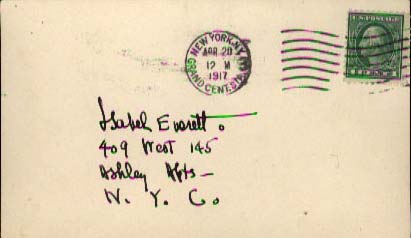 NEW YORK, N.Y.
APR 20
12 M
1917
GRAND CENT. STA.
U.S. POSTAGE
1 CENT 1
Isabel Everett.
409 West 145
Ashley Apts—
N. Y. C.